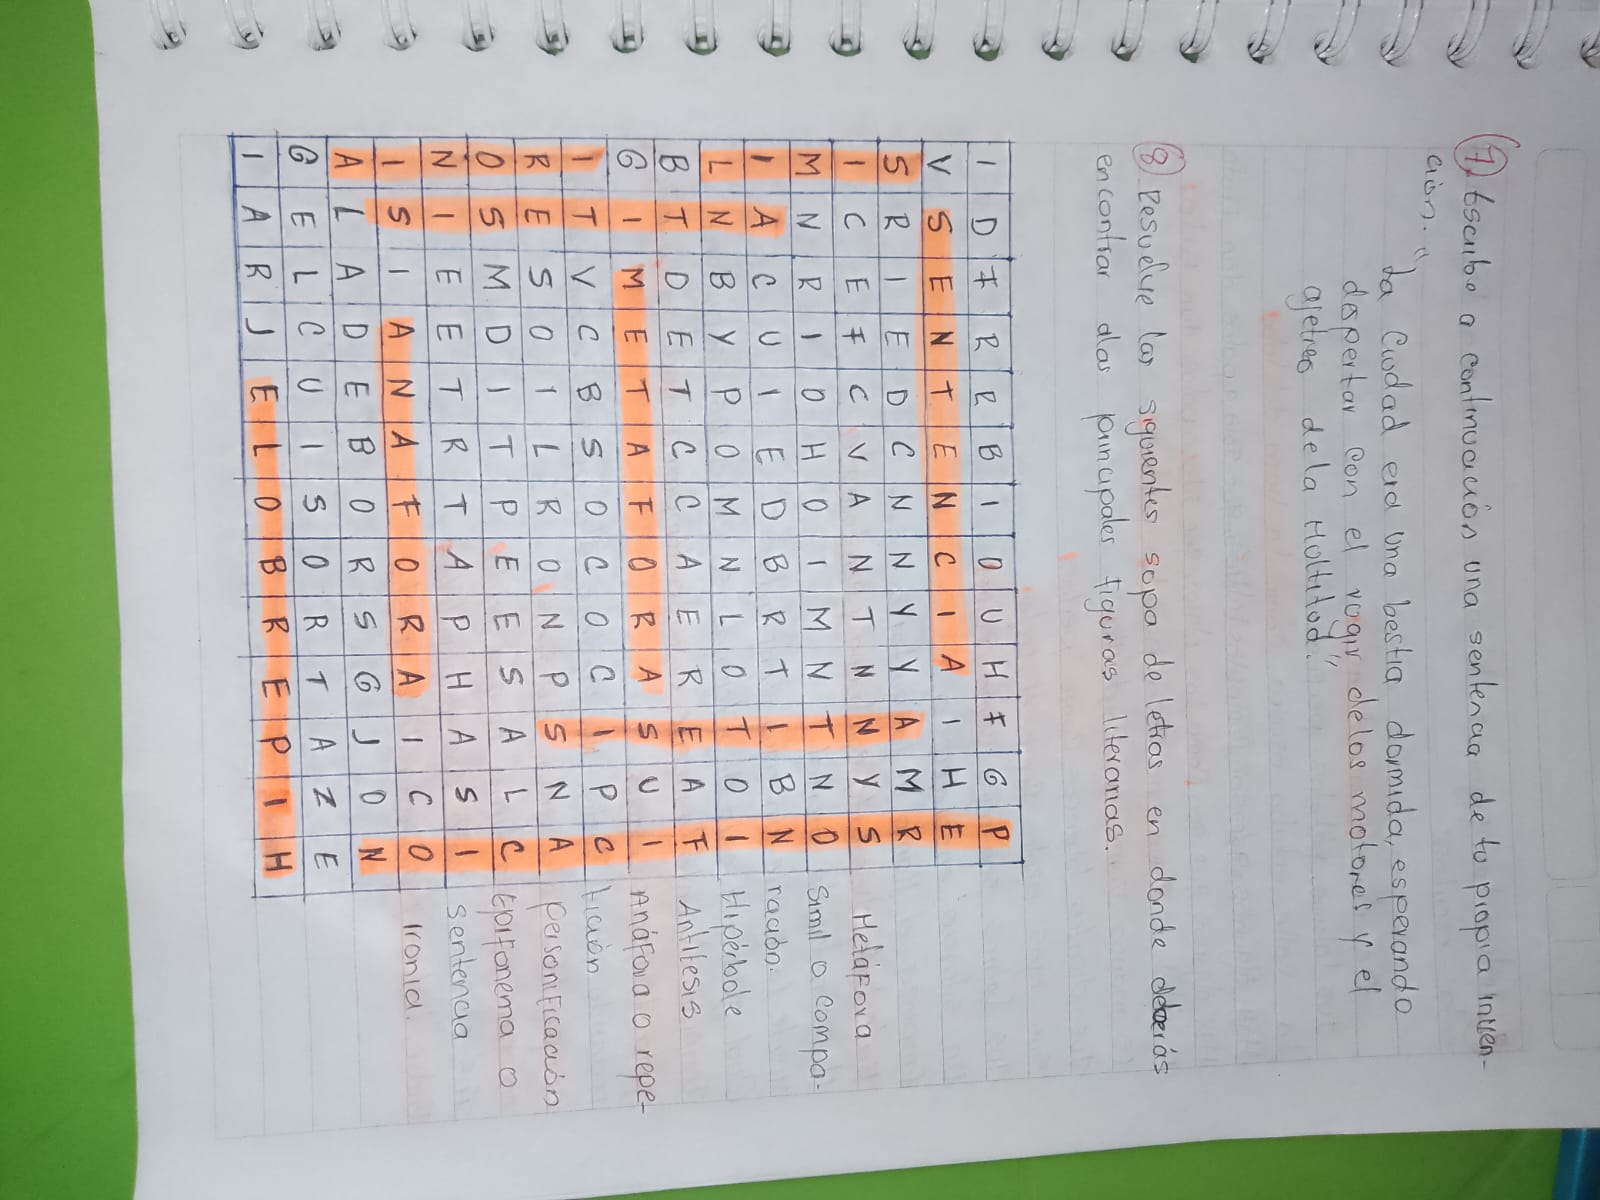 7. Escribe a continuación una sentencia de tu propia inven-
ción.
"La Ciudad era una bestia dormida, esperando
despertar con el rogir de los motores y el
ajetreo de la Multitud."
8. Resuelve las siguientes sopa de letras en donde deberás
encontrar dlas principales figuras literarias.
I D F R R B I O U H F G P
V S E N T E N C I A I H E
S R I E D C N N Y Y A M R
I C E F C V A N T N N Y S Metáfora
M N R I O H O I M N T N O Simil o Compa-
I A C U I E D B R T I B N ración.
L N B Y P O M N L O T O I Hipérbole
B T D E T C C A E R E A F Antitesis
G I M E T A F O R A S U I Anáfora o repe-
I T V C B S O C O C I P C tición
R E S O I L R O N P S N A personificación
O S M D I T P E E S A L C Epifonema o
N I E E T R T A P H A S I Sentencia
I S I A N A F O R A I C O Ironia.
A L A D E B O R S G J O N
G E L C U I S O R T A Z E
I A R J E L O B R E P I H